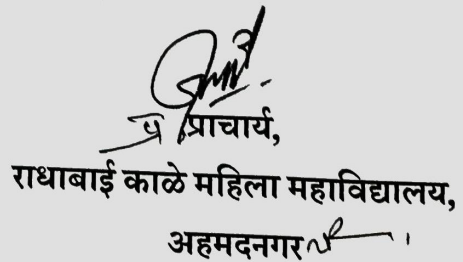 प्र प्राचार्य,
राधाबाई काळे महिला महाविद्यालय,
अहमदनगर